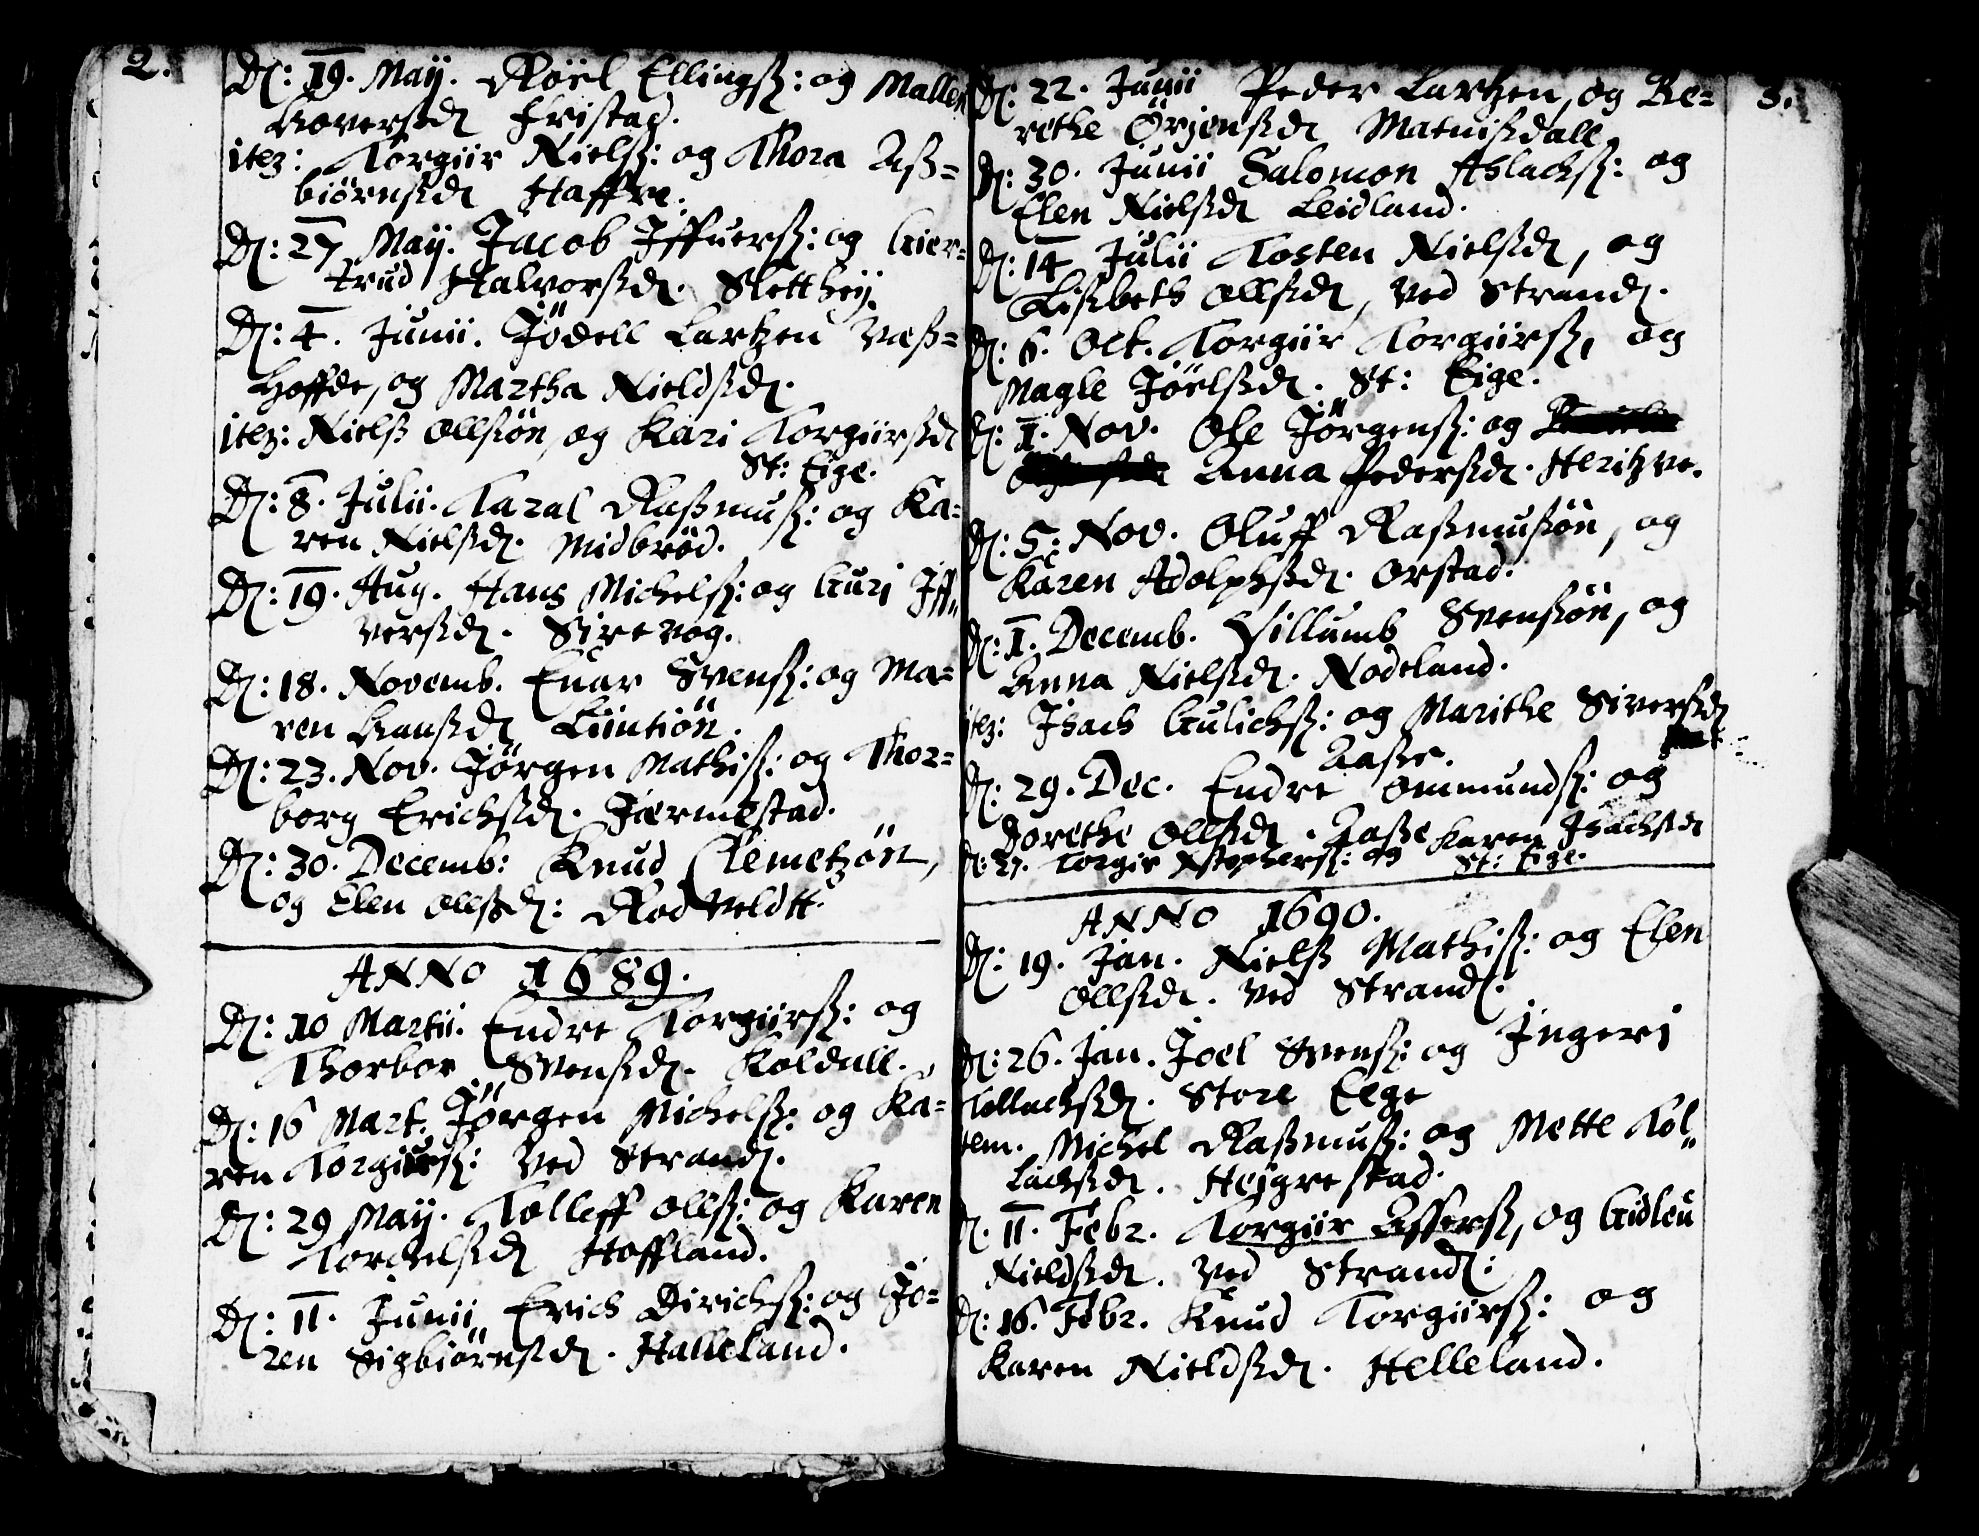 2.
D: 19. Maij. Roiel Ellingsß: og Mallen
Koversdr Fristad.
item: Torgiir Nielsß: og Thora Asß=
biörnsdr Haffre.
D: 27 Maij. Jacob Iffuersß: og Gier=
trud Halvorsdr. Sletthej.
D: 4. Junii. Jödell Lartzen Væß=
hoffde, og Martha Nieldsdr.
item: Nielß Ollsön, og Kari Torgiirsdr
St: Eige.
D: 8. Julii. Taral Raßmusß: og Ka=
ren Nielsdr. Midbröd.
D: 19. Aug. Hans Michelsß: og Guri Iff=
versdr. Sirevog.
D: 18. Novemb. Enar Svensß: og Ma=
ren Hansdr Liintiön.
D: 23. Nov. Jörgen Mathisß: og Thor=
borg Erichsdr. Jærmestad.
D: 30. Decemb: Knud Clemetzön,
og Elen Ollsdr: Rodveldtt.
ANNO 1689.
D: 10 Martii. Endre Torgiirsß: og
Thorbor Svensdr. Koldall.
D: 16 Mart. Jörgen Michelsß: og Ka=
ren Torgiirsß: Ved Strand.
D: 29 Maij. Tolleff Ollsß: og Karen
Torchelsdr Hoffland.
D: 11. Junii Erich Dirichsß: og Jo=
ren Sigbiörnsdr. Halleland.
3.
D. 22. Junii Peder Lartzen, og Be=
rethe Örjensdr Matnisdall.
D: 30. Junii Salomon Aslachsß: og
Elen Nielsdr Leidland.
D: 14 Julii Tosten Nielsdr, og
Lisibeth Ollsdr, Ved Strand.
D: 6. Oct. Torgiir Torgiirsß, og
Magle Jöelsdr. St: Eige.
D: 1. Nov. Ole Jörgensß: og
Anna Pedersdr. Heritzve.
D: 5. Nov. Oluff Raßmusön, og
Karen Adolphsdr. Orstad.
D: 1. Decemb. Villumb Svensön, og
Anna Nielsdr. Nodeland.
item: Isach Gulichsß: og Marithe Siversdr
Aase.
D: 29. Dec. Endre Ommundsß: og
Dorethe Ollsdr. Aaße Karen Isachsdr
D: 27. Torgir Kstophersß: og St: Eige.
ANNO 1690.
D: 19. Jan. Nielß Mathisß: og Elen
Ollsdr. Ved Strand.
D: 26. Jan. Joel Svensß: og Ingeri
Tollachsdr. Store Eege
item. Michel Raßmusß: og Mette Tol=
lachsdr. Hejgrestad.
D. 11. Febr. Torgiir Assersß, og Gidleu
Nieldsdr. Ved Strand:
D: 16. Febr. Knud Torgiirsß: og
Karen Nieldsdr. Helleland.